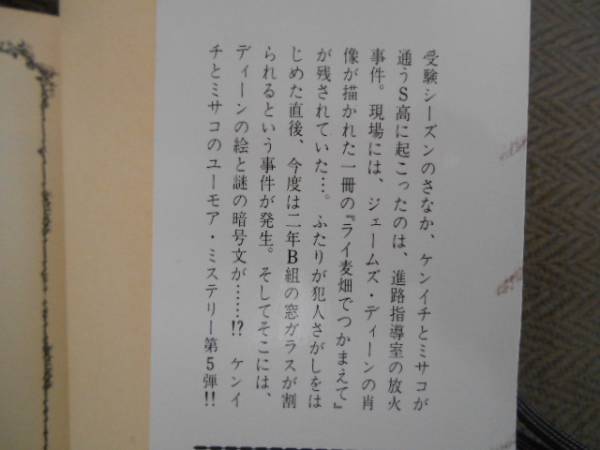 受験シーズンのさなか、ケンイチとミサコが
通うS高に起こったのは、進路指導室の放火
事件。現場には、ジェームズ・ディーンの肖
像が描かれた一冊の『ライ麦畑でつかまえて』
が残されていた…。ふたりが犯人さがしをは
じめた直後、今度は二年B組の窓ガラスが割
られるという事件が発生。そしてそこには、
ディーンの絵と謎の暗号文が……!? ケンイ
チとミサコのユーモア・ミステリー第5弾!!